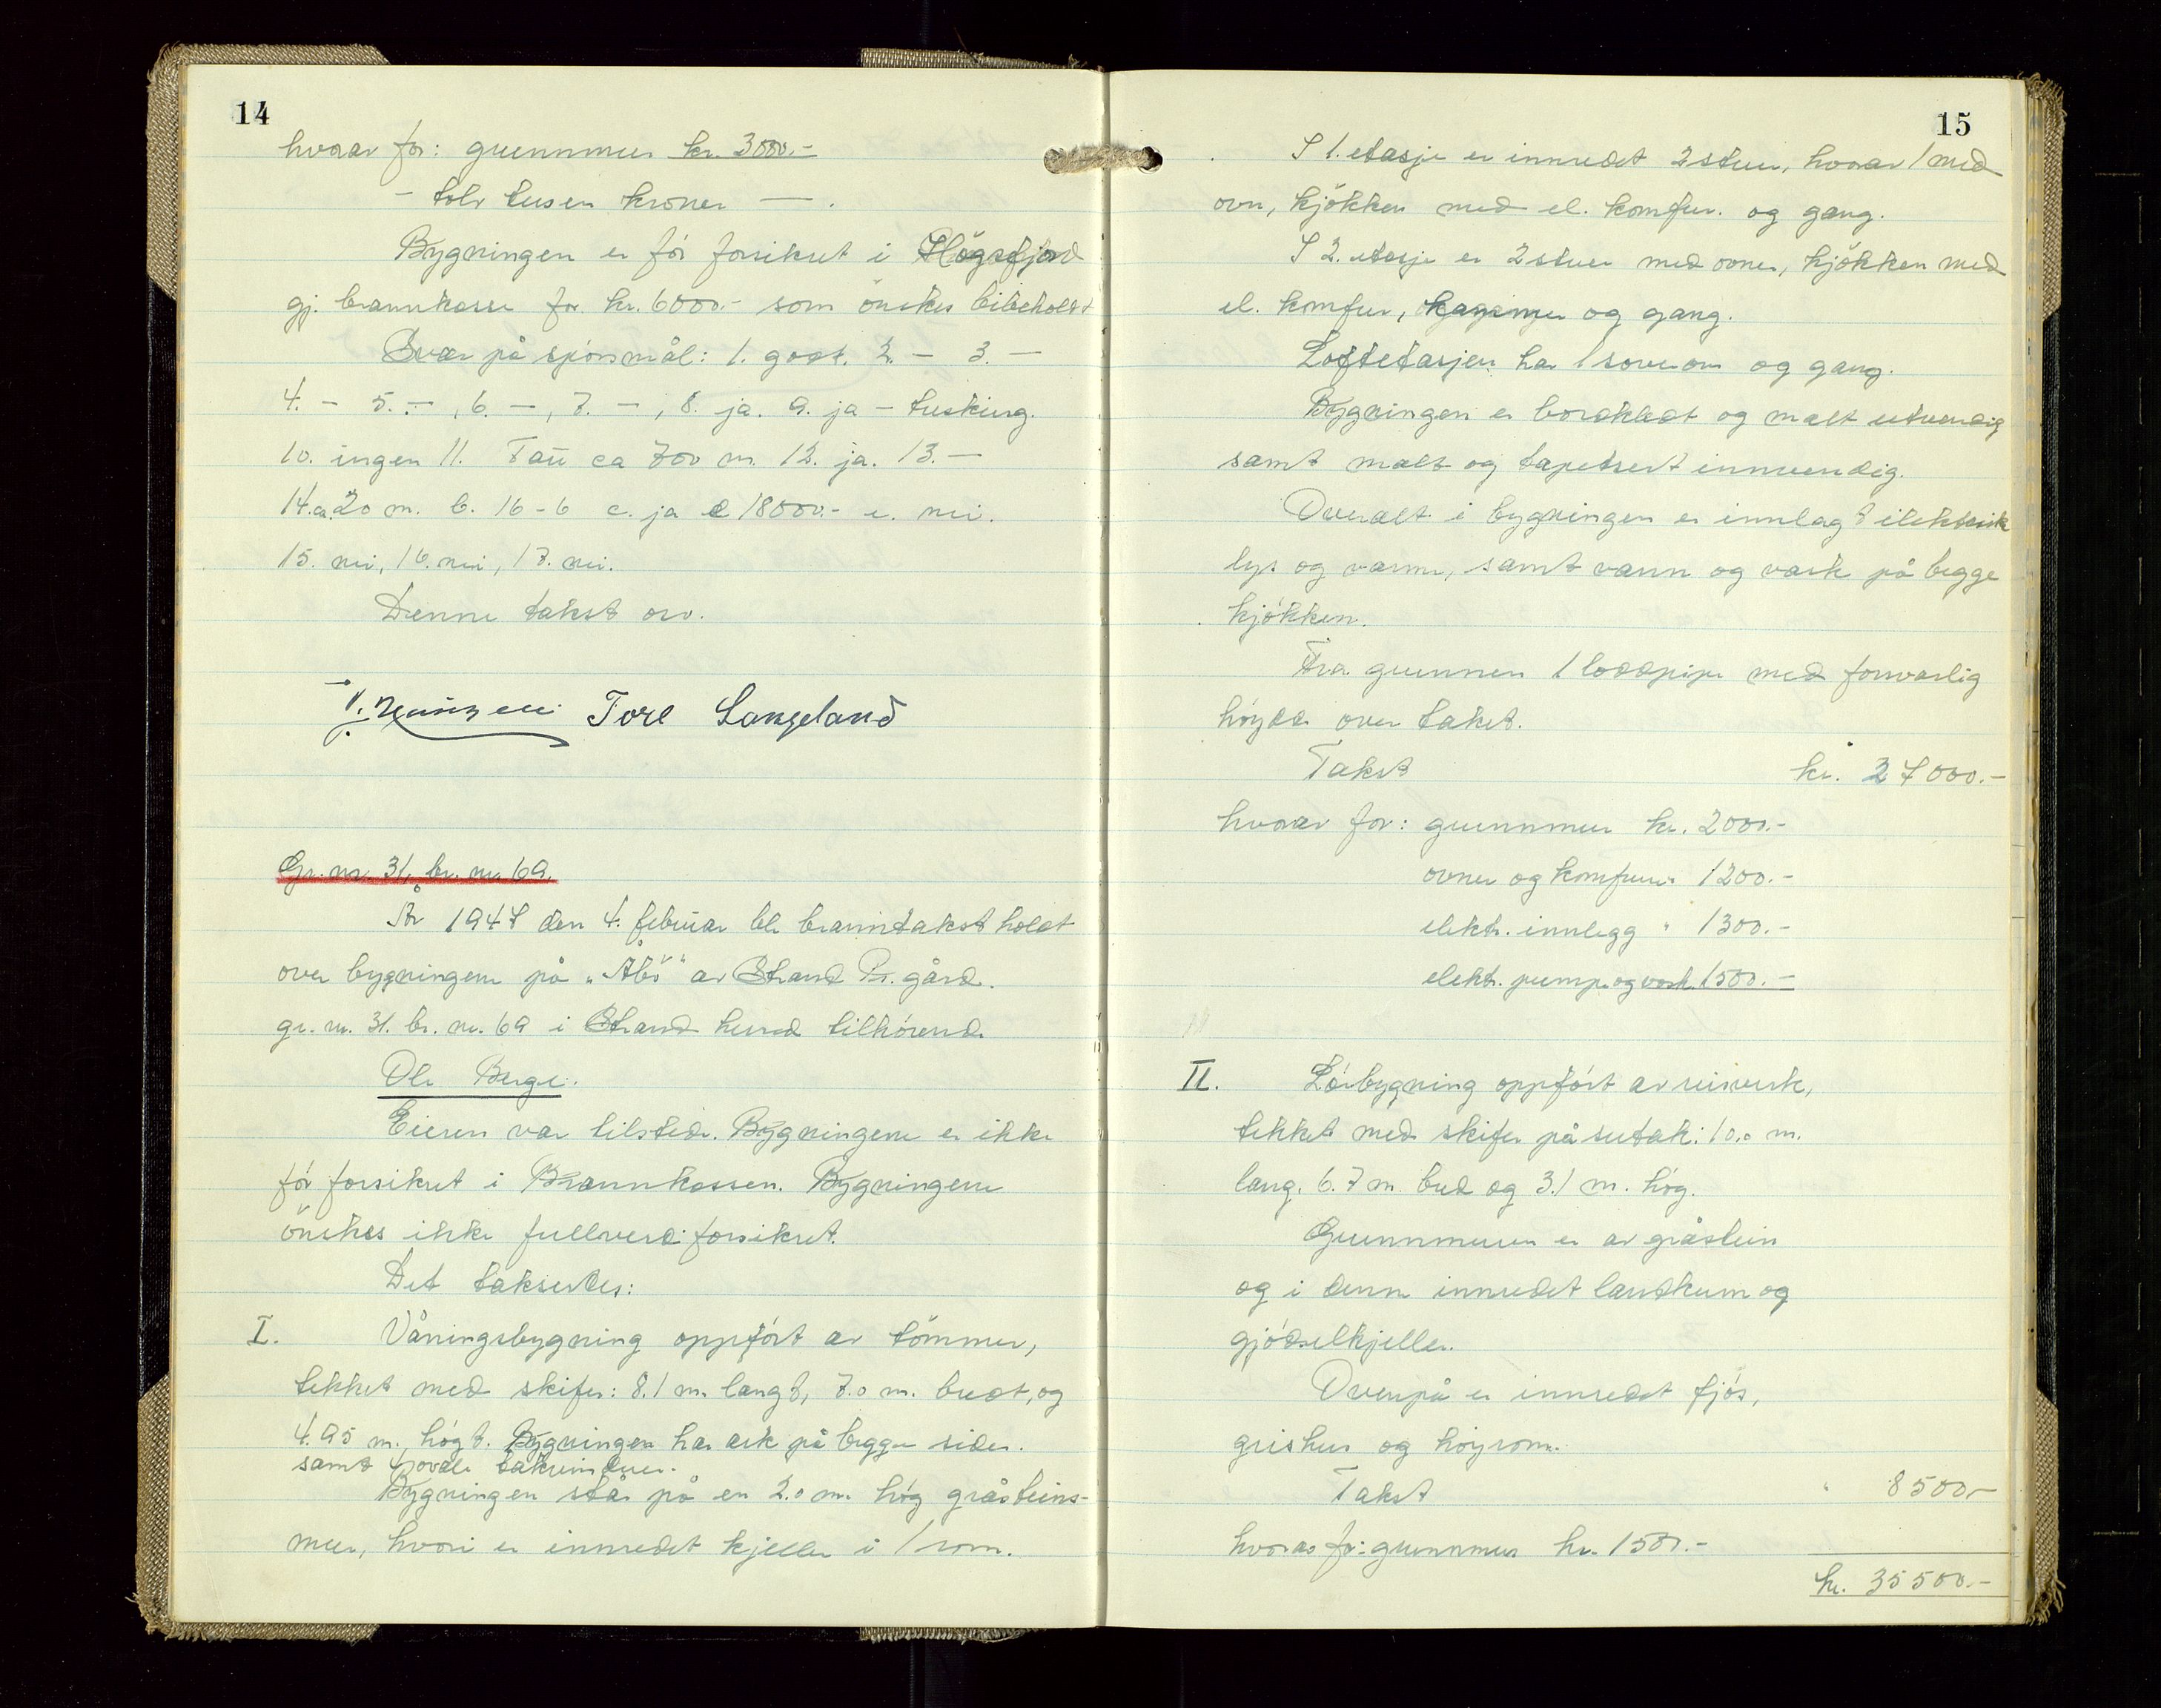 14
hvorav for: grunnmur kr. 3000.-
- tolv tusen kroner — .
Bygningen er før forsikret i Høgsfjord
gj. brannkasse for kr. 6000.- som ønskes bibeholdt
Svar på spørsmål: 1. godt. 2. - 3. -
4. - 5. - , 6. - , 7. - , 8. ja. 9. ja - tusking.
10. ingen 11. Tau ca 700 m. 12. ja. 13. -
14. a. 20 m. b. 16 - 6 c. ja d 18000.- e. nei.
15. nei, 16. nei, 17. nei.
Denne takst osv.
Tore Langeland
Gr. nr. 31, br. nr. 69.
År 1947 den 4. februar ble branntakst holdt
over bygningene på „Åbø" av Strand Pr. gård.
gr. nr. 31. br. nr. 69 i Strand herred tilhørende
Ole Berge.
Eieren var tilstede. Bygningene er ikke
før forsikret i Brannkassen. Bygningene
ønskes ikke fullverdiforsikret.
Det takserdes:
I. Våningsbygning oppført av tømmer,
tekket med skifer: 8.1 m. langt, 7.0 m. bredt, og
4.95 m., høgt. Bygningen har ark på begge sider.
samt 4 ovale takvinduer.
Bygningen står på en 2.0 m. høg gråsteins-
mur, hvori er innredet kjeller i 1 rom.
15
I 1. etasje er innredet 2 stuer, hvorav 1 med
ovn, kjøkken med el. komfur. og gang.
I 2. etasje er 2 stuer med ovner, kjøkken med
el. komfur, kammer og gang.
Loftetasjen har 1 soverom og gang.
Bygningen er bordkledt og malt utvendig
samt malt og tapetsert innvendig.
Overalt i bygningen er innlagt elektrisk
lys og varme, samt vann og vask på begge
kjøkken.
Fra grunnen 1 loddpipe med forsvarlig
høyde over taket.
Takst kr. 27000.-
hvorav for: grunnmur kr. 2000.-
ovner og komfurer " 1200.-
elektr. innlegg " 1300.-
elektr. pumpe og vask. 1500.-
II. Løebygning oppført av reisverk,
tekket med skifer på sutak: 10.0 m.
lang. 6.7 m. bred og 3.1 m. høg.
Grunnmuren er av gråstein
og i denne innredet landkum og
gjødselkjeller.
Ovenpå er innredet fjøs,
grishus og høyrom.
Takst " 8500.-
hvorav for: grunnmur kr. 1500.-
kr. 35500.-